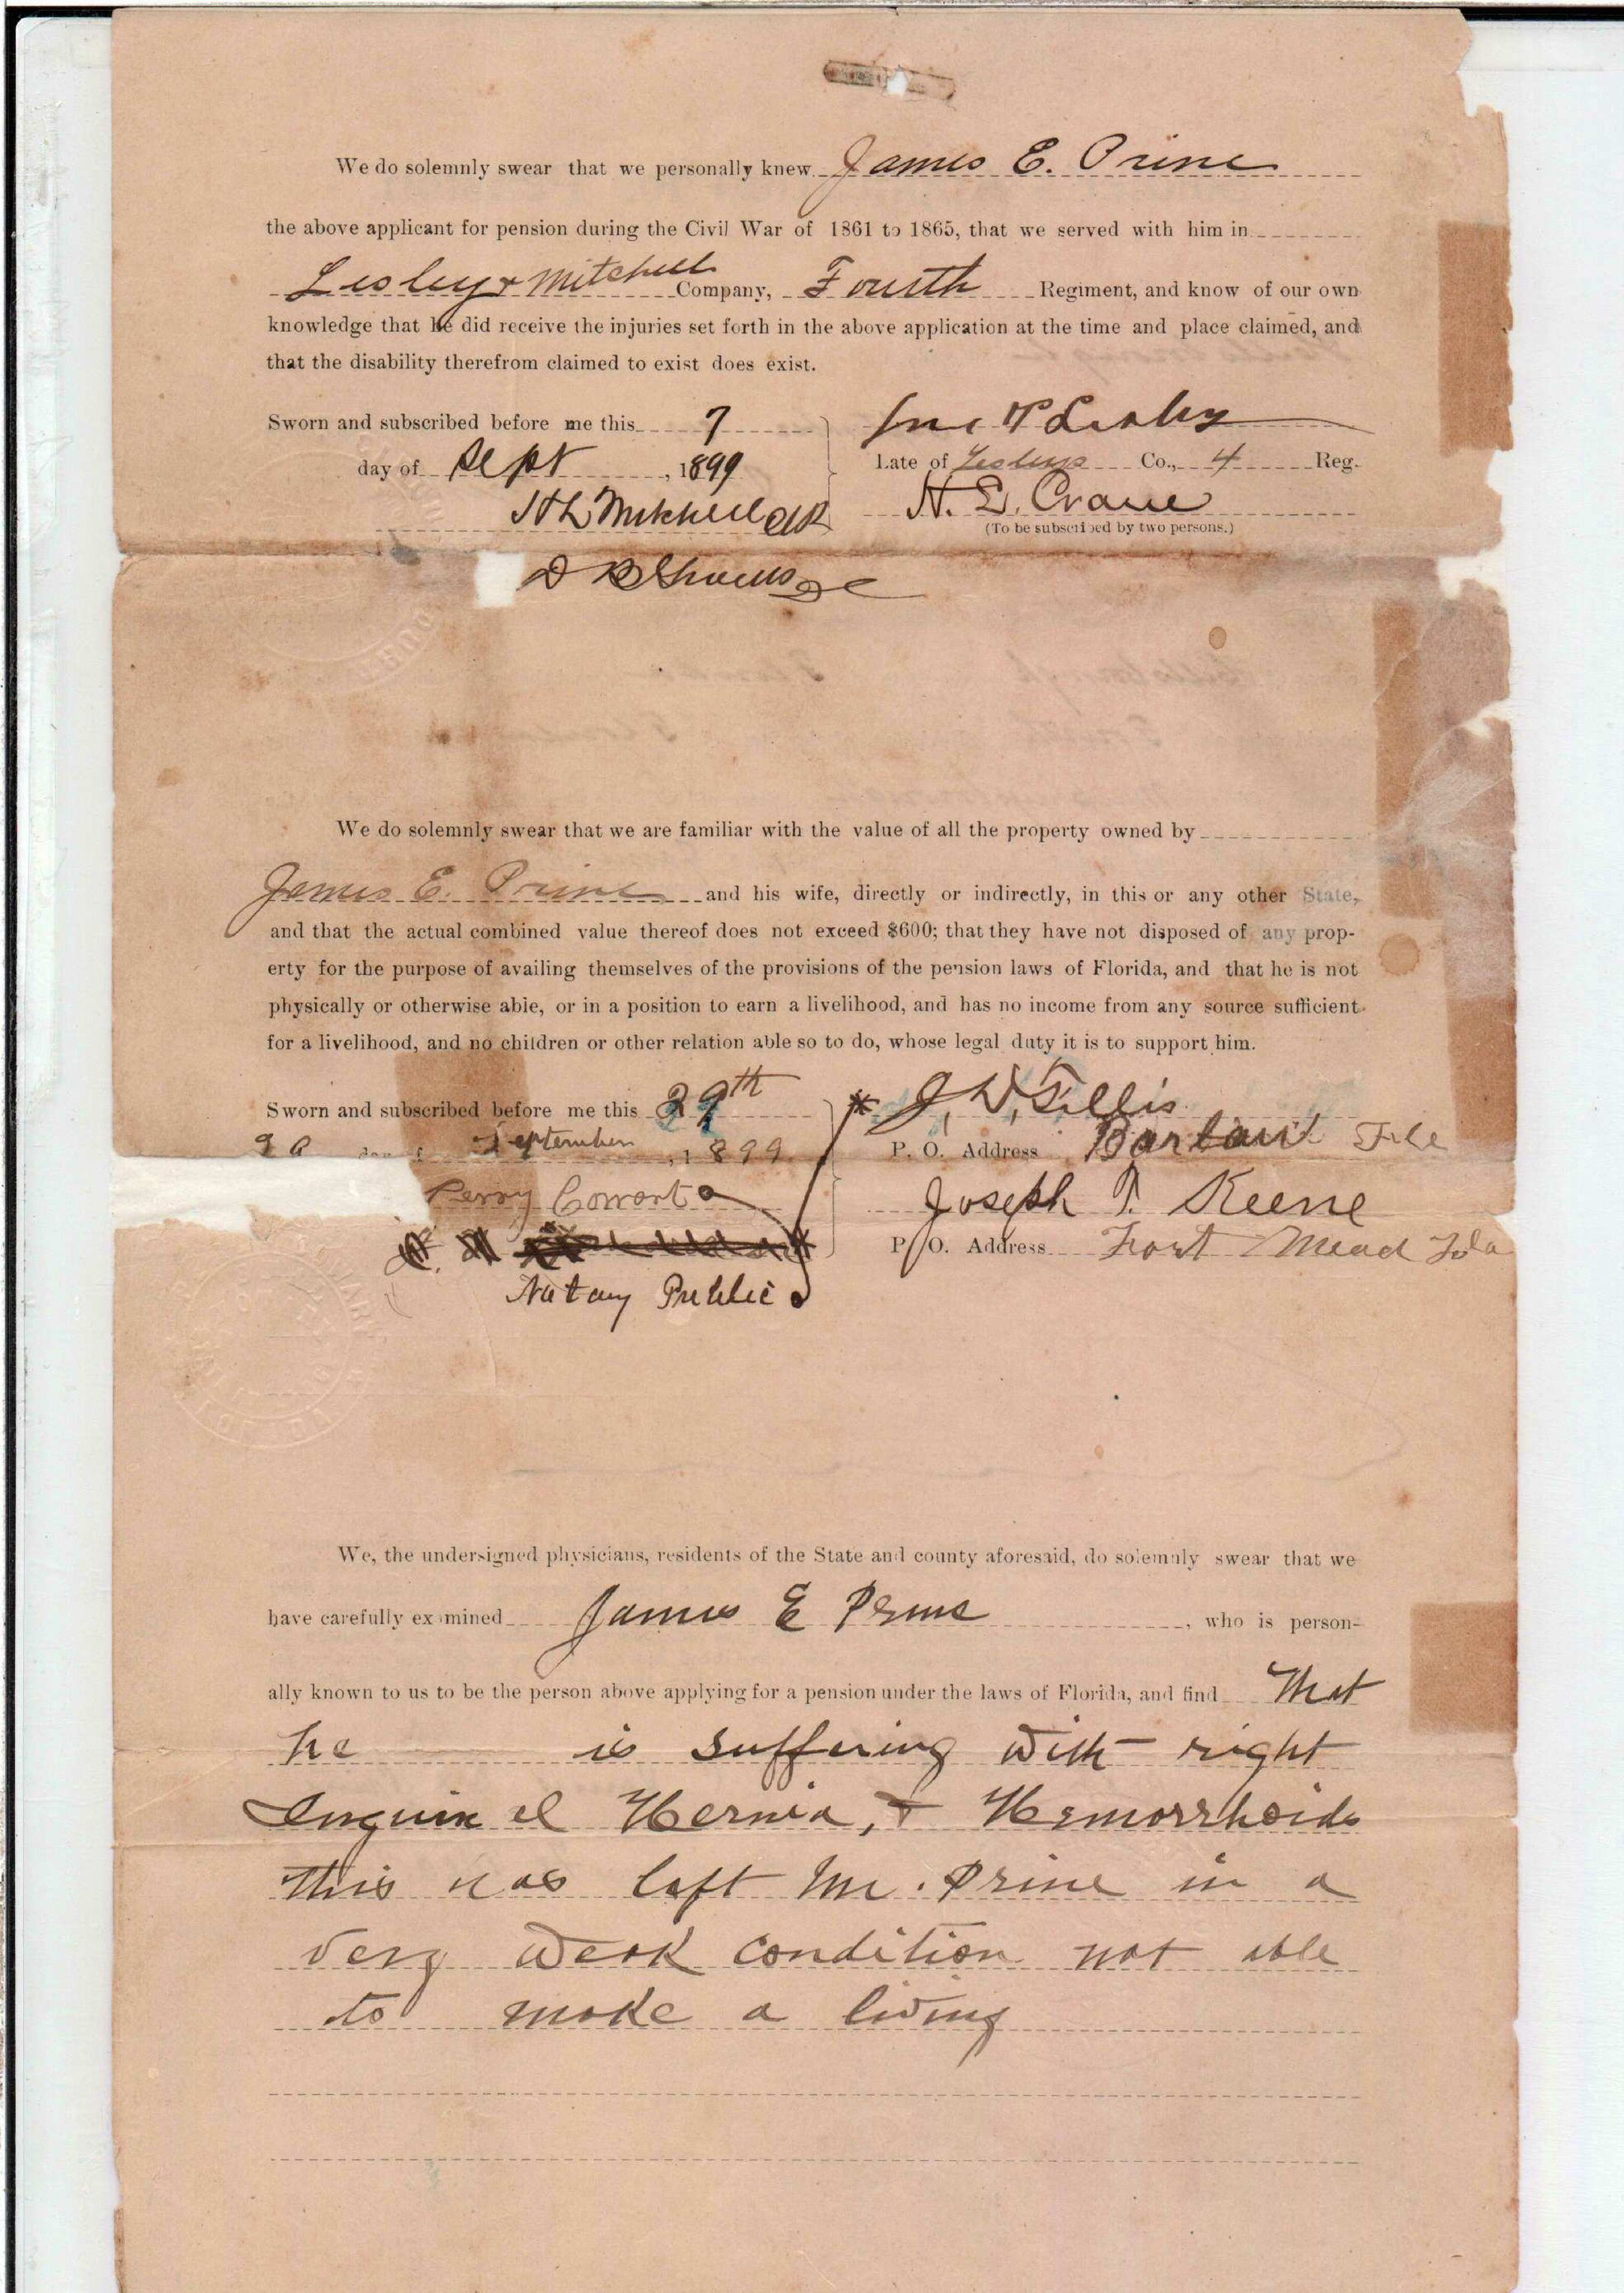 We do solemnly swear that we personally knew James E. Prine
the above applicant for pension during the Civil War of 1861 to 1865, that we served with him in
Lesley & Mitchell Company, Fourth Regiment, and know of our own
knowledge that he did receive the injuries set forth in the above application at the time and place claimed, and
that the disability therefrom claimed to exist does exist.
Sworn and subscribed before me this 7
day of Sept, 1899
Jno T Lesley
Late of Lesleys Co., 4 Reg.
H L Mitchell
H. L. Crane
(To be subscribed by two persons.)
D B
We do solemnly swear that we are familiar with the value of all the property owned by
James E. Prine and his wife, directly or indirectly, in this or any other State,
and that the actual combined value thereof does not exceed $600; that they have not disposed of any prop-
erty for the purpose of availing themselves of the provisions of the pension laws of Florida, and that he is not
physically or otherwise able, or in a position to earn a livelihood, and has no income from any source sufficient
for a livelihood, and no children or other relation able so to do, whose legal duty it is to support him.
Sworn and subscribed before me this 29th
day of September, 1899
Perry Cowart
Notary Public
* J. W. Tillis
P. O. Address Bartow
Joseph T. Keene
P. O. Address Fort Mead Fla
We, the undersigned physicians, residents of the State and county aforesaid, do solemnly swear that we
have carefully examined James E Prine, who is person-
ally known to us to be the person above applying for a pension under the laws of Florida, and find That
he is suffering with right
Inguinel Hernia, & Hemorrhoids
this has left Mr. Prine in a
very weak condition not able
to make a living